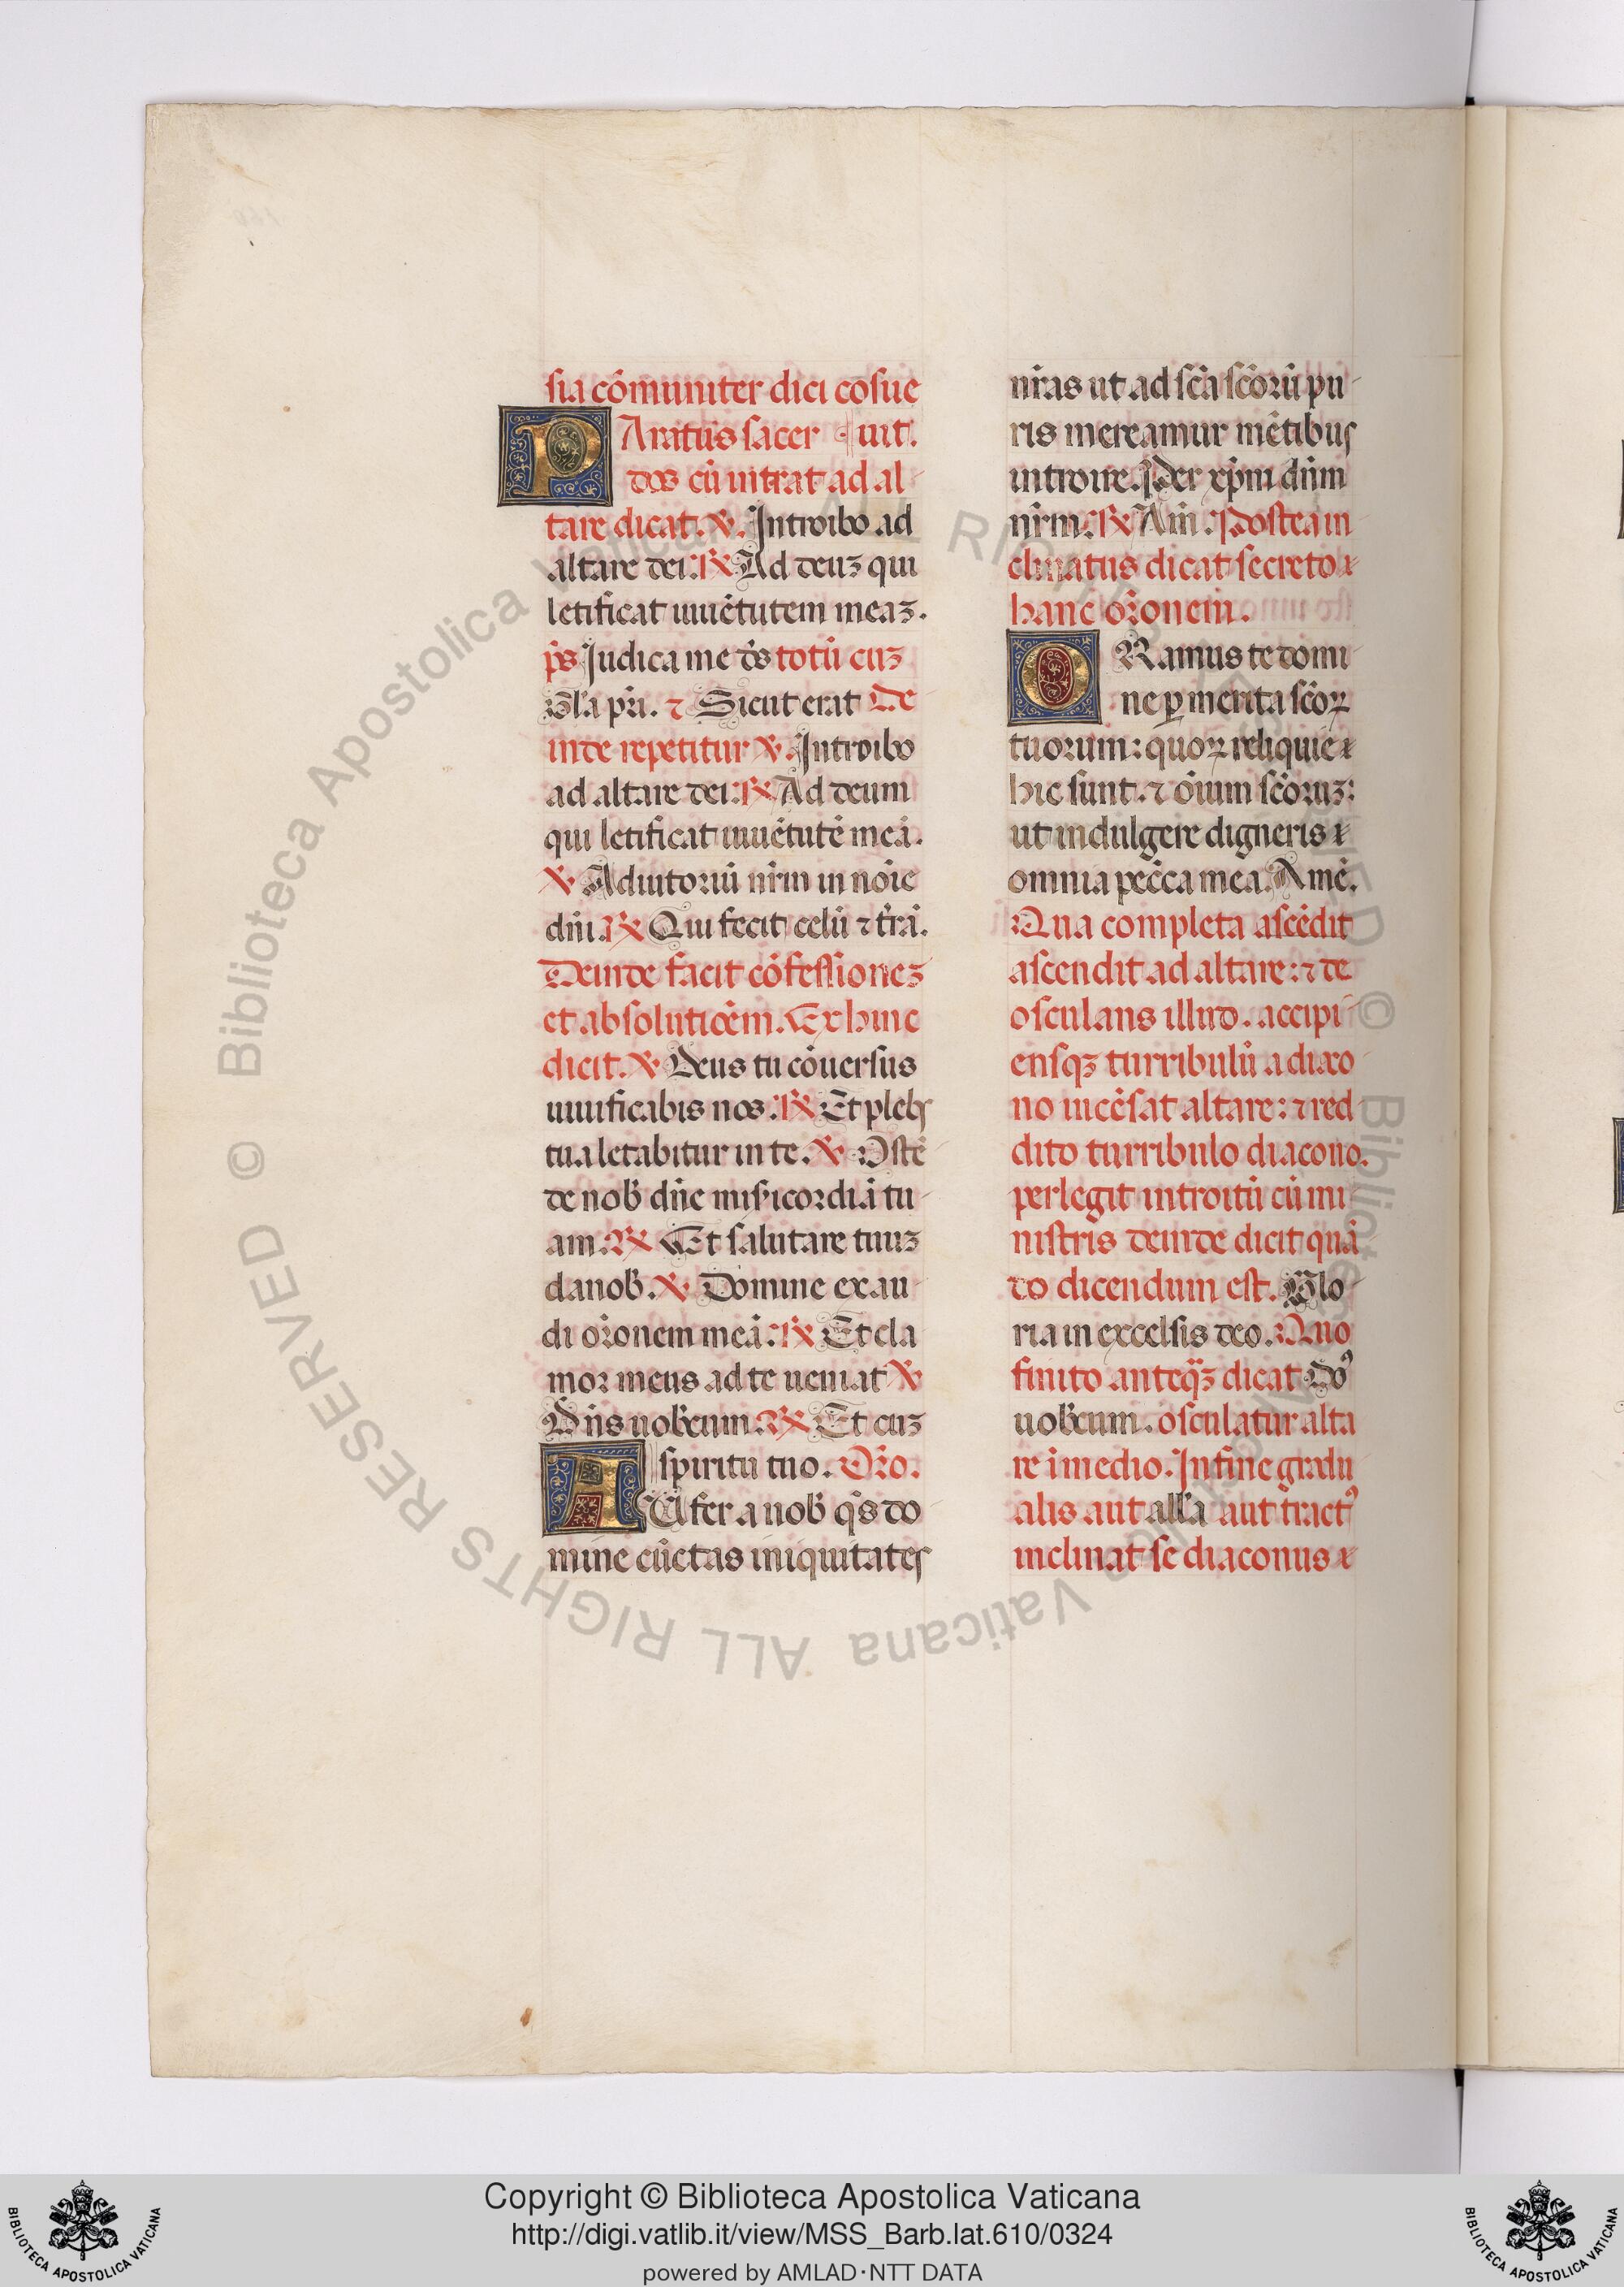 sia cōmuniter dici cōsue
PAratus sacer uit.
dos cū intrat ad al
tare dicat. ℣. Introibo ad
altare dei. ℟ Ad deuꝫ qui
letificat iuuētutem meaꝫ.
p̄s Iudica me d̄s totū cuꝫ
Gl̄a pr̄i. ⁊ Sicut erat De
inde repetitur ℣. Introibo
ad altare dei. ℟ Ad deum
qui letificat iuuētutē meā.
℣ Adiutoriū nr̄m in noīe
dn̄i. ℟ Qui fecit celū ⁊ t̄rā.
Deinde facit cōfessioneꝫ
et absolutiōem. Ex hinc
dicit. ℣ Deus tu cōuersus
uiuificabis nos. ℟ Et plebs
tua letabitur in te. ℣ Ostē
de nob̄ dn̄e misicordiā tu
am. ℟ Et salutare tuuꝫ
da nob̄. ℣ Domine exau
di or̄onem meā. ℟ Et cla
mor meus ad te ueniat ℣
Dn̄s uob̄cum. ℟ Et cuꝫ
spiritu tuo. Or̄o.
AUfer a nob̄ q̄s do
mine cūctas iniquitates
nr̄as ut ad sc̄a sc̄orū pu
ris mereamur mētibus
introire. Per xp̄m dn̄m
nr̄m. ℟ Am̄. Postea in
clinatus dicat secreto
hanc or̄onem.
ORamus te domi
ne ꝑ merita sc̄oꝝ
tuorum: quoꝝ reliquie
hic sunt. ⁊ oīum sc̄oruꝫ:
ut indulgere digneris
omnia pecc̄a mea. Amē.
Qua completa ascēdit
ascendit ad altare: ⁊ de
osculans illud. accipi
ensqꝫ turribulū a diaco
no incēsat altare: ⁊ red
dito turribulo diacono.
perlegit introitū cū mi
nistris deinde dicit quā
do dicendum est. Glo
ria in excelsis deo. Quo
finito anteqꝫ dicat Doꝰ
uob̄cum. osculatur alta
re ī medio. In fine gradu
alis aut all̄a aut tractꝰ
inclinat se diaconus
Copyright © Biblioteca Apostolica Vaticana
http://digi.vatlib.it/view/MSS_Barb.lat.610/0324
powered by AMLAD·NTT DATA
BIBLIOTECA APOSTOLICA VATICANA
BIBLIOTECA APOSTOLICA VATICANA
© Biblioteca Apostolica Vaticana ALL RIGHTS RESERVED © Biblioteca Apostolica Vaticana ALL RIGHTS RESERVED